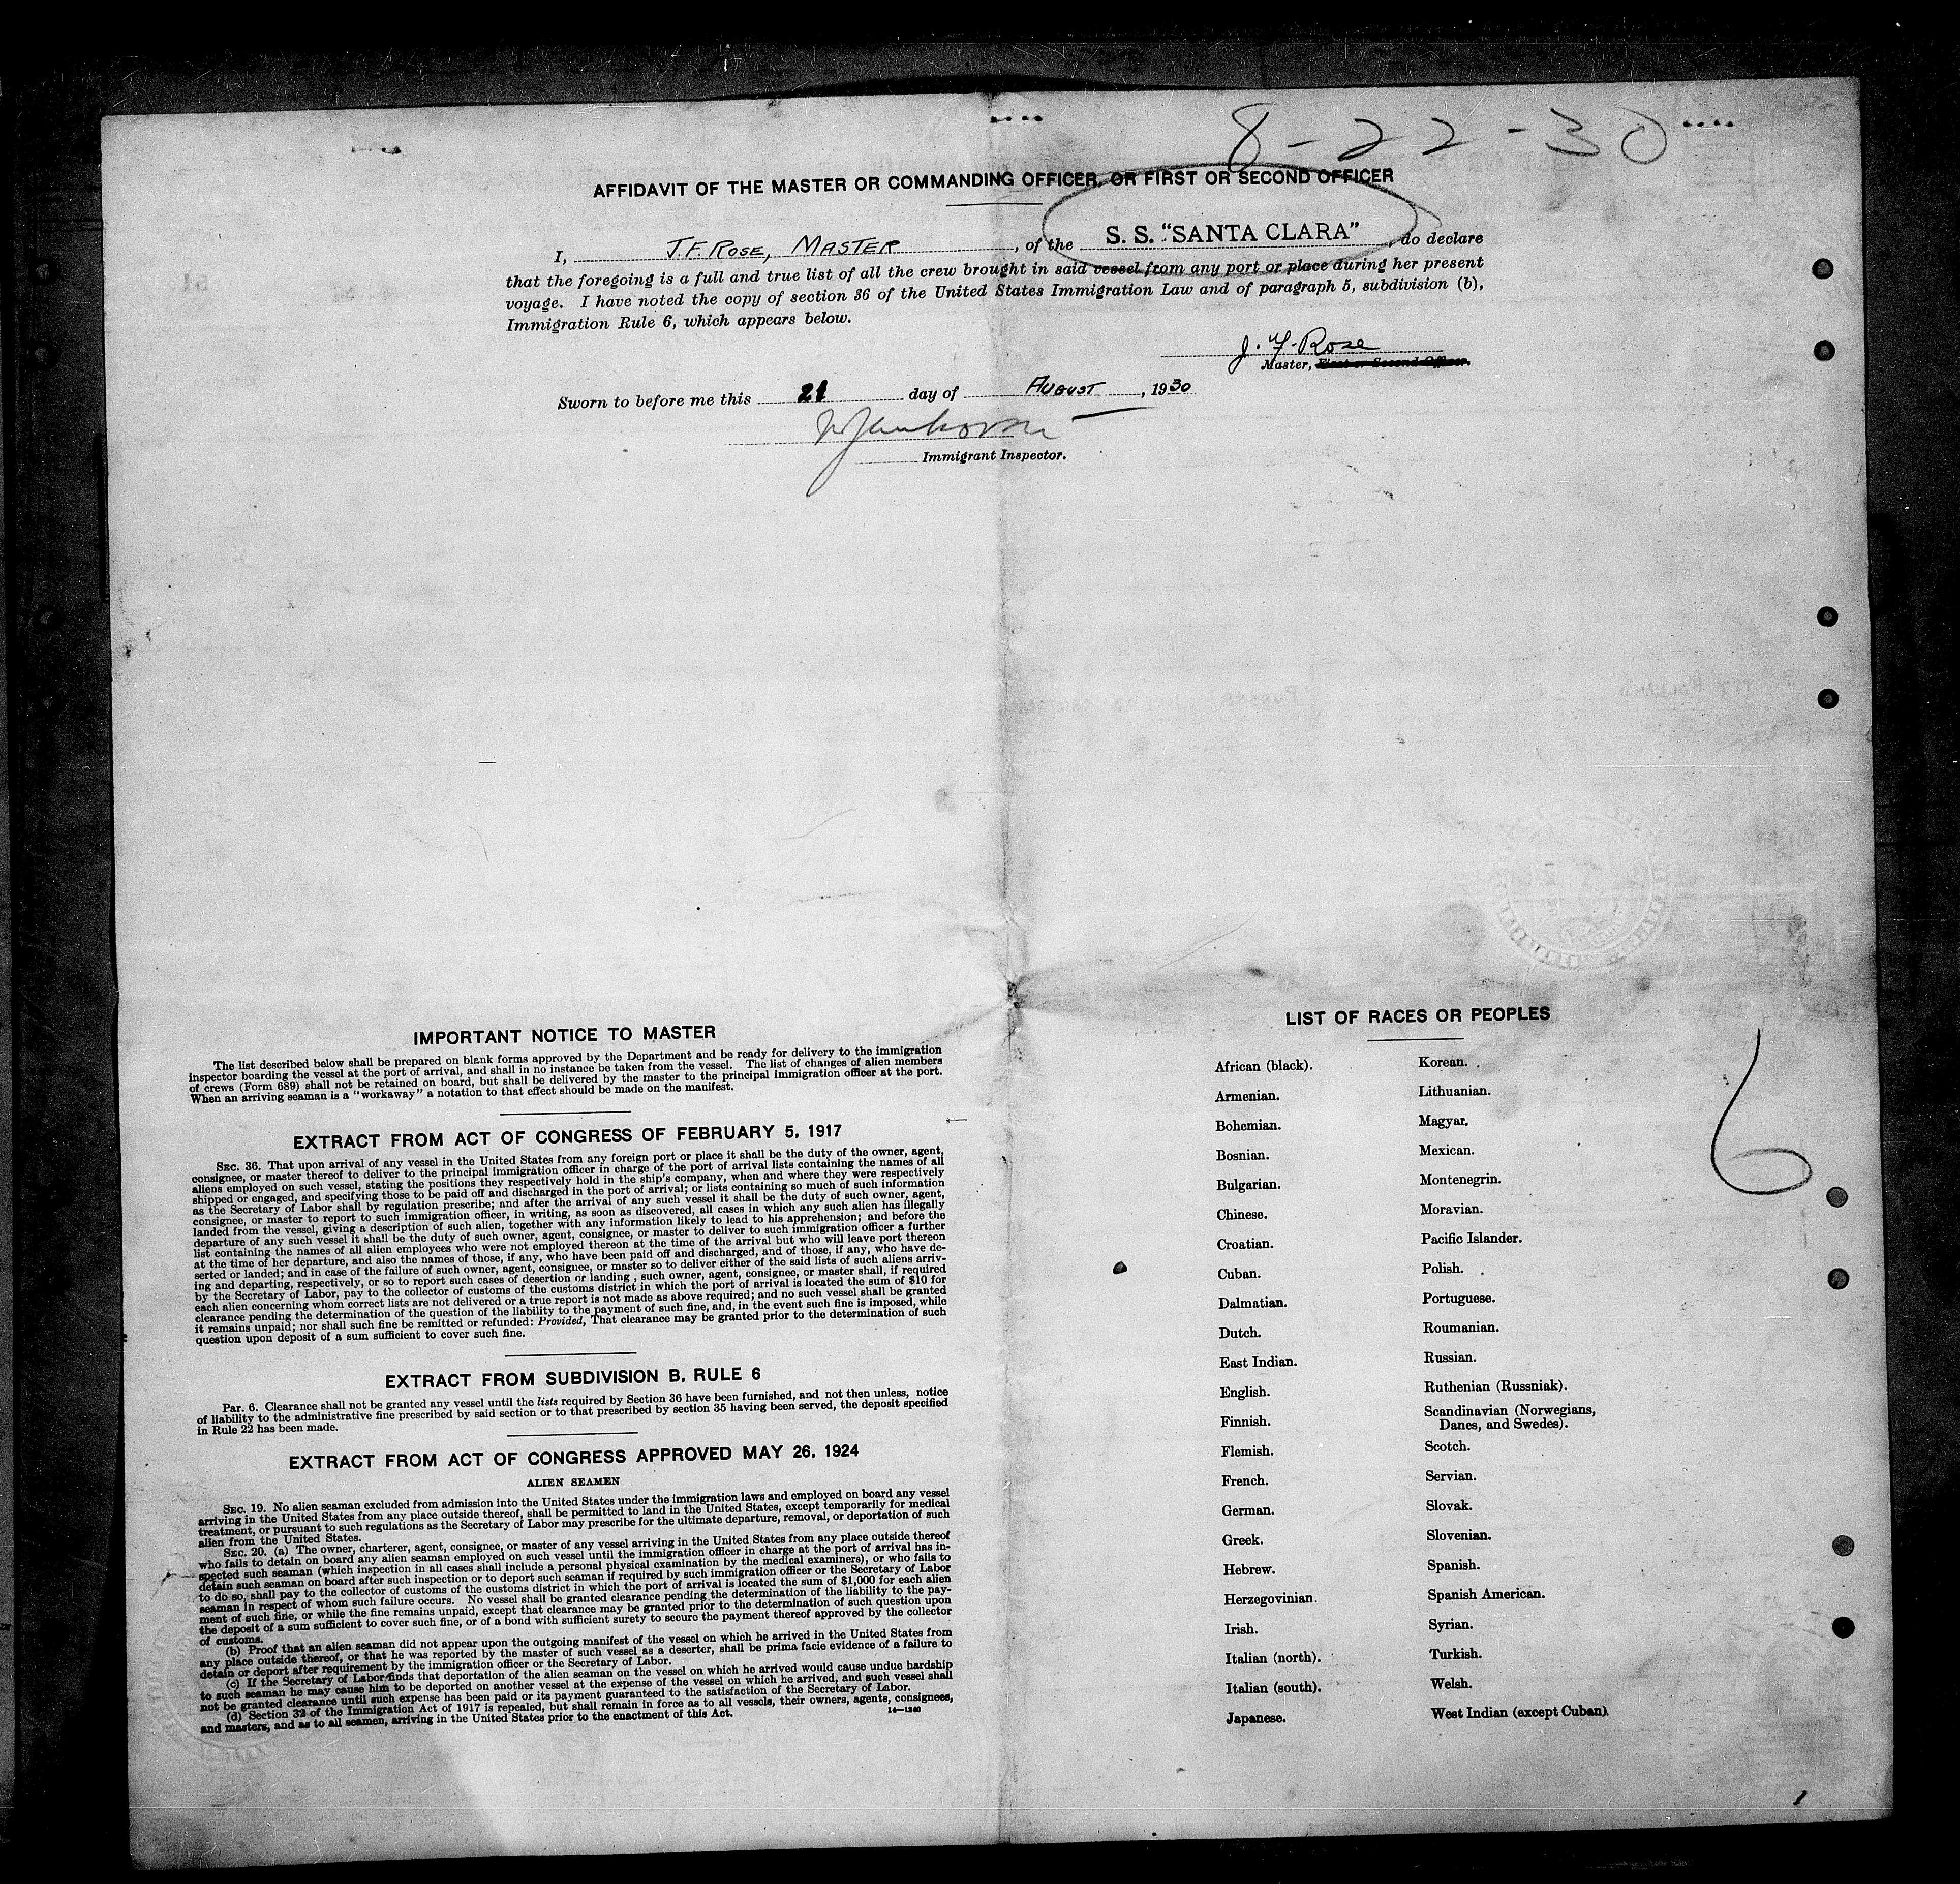 8-22-30
AFFIDAVIT OF THE MASTER OR COMMANDING OFFICER, OR FIRST OR SECOND OFFICER
I, J. F. ROSE, MASTER, of the S. S. "SANTA CLARA", do declare
that the foregoing is a full and true list of all the crew brought in said vessel from any port or place during her present
voyage. I have noted the copy of section 36 of the United States Immigration Law and of paragraph 5, subdivision (b),
Immigration Rule 6, which appears below.
J. F. Rose
Master, First or Second Officer.
Sworn to before me this 21 day of AUGUST, 1930
Immigrant Inspector.
IMPORTANT NOTICE TO MASTER
The list described below shall be prepared on blank forms approved by the Department and be ready for delivery to the immigration
inspector boarding the vessel at the port of arrival, and shall in no instance be taken from the vessel. The list of changes of alien members
of crews (Form 689) shall not be retained on board, but shall be delivered by the master to the principal immigration officer at the port.
When an arriving seaman is a "workaway" a notation to that effect should be made on the manifest.
EXTRACT FROM ACT OF CONGRESS OF FEBRUARY 5, 1917
SEC. 36. That upon arrival of any vessel in the United States from any foreign port or place it shall be the duty of the owner, agent,
consignee, or master thereof to deliver to the principal immigration officer in charge of the port of arrival lists containing the names of all
aliens employed on such vessel, stating the positions they respectively hold in the ship's company, when and where they were respectively
shipped or engaged, and specifying those to be paid off and discharged in the port of arrival; or lists containing so much of such information
as the Secretary of Labor shall by regulation prescribe; and after the arrival of any such vessel it shall be the duty of such owner, agent,
consignee, or master to report to such immigration officer, in writing, as soon as discovered, all cases in which any such alien has illegally
landed from the vessel, giving a description of such alien, together with any information likely to lead to his apprehension; and before the
departure of any such vessel it shall be the duty of such owner, agent, consignee, or master to deliver to such immigration officer a further
list containing the names of all alien employees who were not employed thereon at the time of the arrival but who will leave port thereon
at the time of her departure, and also the names of those, if any, who have been paid off and discharged, and of those, if any, who have de-
serted or landed; and in case of the failure of such owner, agent, consignee, or master so to deliver either of the said lists of such aliens arriv-
ing and departing, respectively, or so to report such cases of desertion or landing, such owner, agent, consignee, or master shall, if required
by the Secretary of Labor, pay to the collector of customs of the customs district in which the port of arrival is located the sum of $10 for
each alien concerning whom correct lists are not delivered or a true report is not made as above required; and no such vessel shall be granted
clearance pending the determination of the question of the liability to the payment of such fine, and, in the event such fine is imposed, while
it remains unpaid; nor shall such fine be remitted or refunded: Provided, That clearance may be granted prior to the determination of such
question upon deposit of a sum sufficient to cover such fine.
EXTRACT FROM SUBDIVISION B, RULE 6
Par. 6. Clearance shall not be granted any vessel until the lists required by Section 36 have been furnished, and not then unless, notice
of liability to the administrative fine prescribed by said section or to that prescribed by section 35 having been served, the deposit specified
in Rule 22 has been made.
EXTRACT FROM ACT OF CONGRESS APPROVED MAY 26, 1924
ALIEN SEAMEN
SEC. 19. No alien seaman excluded from admission into the United States under the immigration laws and employed on board any vessel
arriving in the United States from any place outside thereof, shall be permitted to land in the United States, except temporarily for medical
treatment, or pursuant to such regulations as the Secretary of Labor may prescribe for the ultimate departure, removal, or deportation of such
alien from the United States.
SEC. 20. (a) The owner, charterer, agent, consignee, or master of any vessel arriving in the United States from any place outside thereof
who fails to detain on board any alien seaman employed on such vessel until the immigration officer in charge at the port of arrival has in-
spected such seaman (which inspection in all cases shall include a personal physical examination by the medical examiners), or who fails to
detain such seaman on board after such inspection or to deport such seaman if required by such immigration officer or the Secretary of Labor
to do so, shall pay to the collector of customs of the customs district in which the port of arrival is located the sum of $1,000 for each alien
seaman in respect of whom such failure occurs. No vessel shall be granted clearance pending the determination of the liability to the pay-
ment of such fine, or while the fine remains unpaid, except that clearance may be granted prior to the determination of such question upon
the deposit of a sum sufficient to cover such fine, or of a bond with sufficient surety to secure the payment thereof approved by the collector
of customs.
(b) Proof that an alien seaman did not appear upon the outgoing manifest of the vessel on which he arrived in the United States from
any place outside thereof, or that he was reported by the master of such vessel as a deserter, shall be prima facie evidence of a failure to
detain or deport after requirement by the immigration officer or the Secretary of Labor.
(c) If the Secretary of Labor finds that deportation of the alien seaman on the vessel on which he arrived would cause undue hardship
to such seaman he may cause him to be deported on another vessel at the expense of the vessel on which he arrived, and such vessel shall
not be granted clearance until such expense has been paid or its payment guaranteed to the satisfaction of the Secretary of Labor.
(d) Section 32 of the Immigration Act of 1917 is repealed, but shall remain in force as to all vessels, their owners, agents, consignees,
and masters, and as to all seamen, arriving in the United States prior to the enactment of this Act.
14—1240
LIST OF RACES OR PEOPLES
African (black).
Armenian.
Bohemian.
Bosnian.
Bulgarian.
Chinese.
Croatian.
Cuban.
Dalmatian.
Dutch.
East Indian.
English.
Finnish.
Flemish.
French.
German.
Greek.
Hebrew.
Herzegovinian.
Irish.
Italian (north).
Italian (south).
Japanese.
Korean.
Lithuanian.
Magyar.
Mexican.
Montenegrin.
Moravian.
Pacific Islander.
Polish.
Portuguese.
Roumanian.
Russian.
Ruthenian (Russniak).
Scandinavian (Norwegians,
Danes, and Swedes).
Scotch.
Servian.
Slovak.
Slovenian.
Spanish.
Spanish American.
Syrian.
Turkish.
Welsh.
West Indian (except Cuban).
6
1